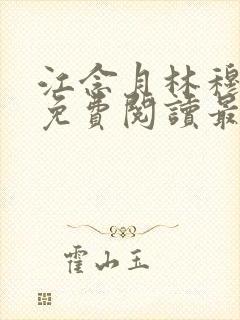 江念月林穆
免費閱讀最
霍山玉